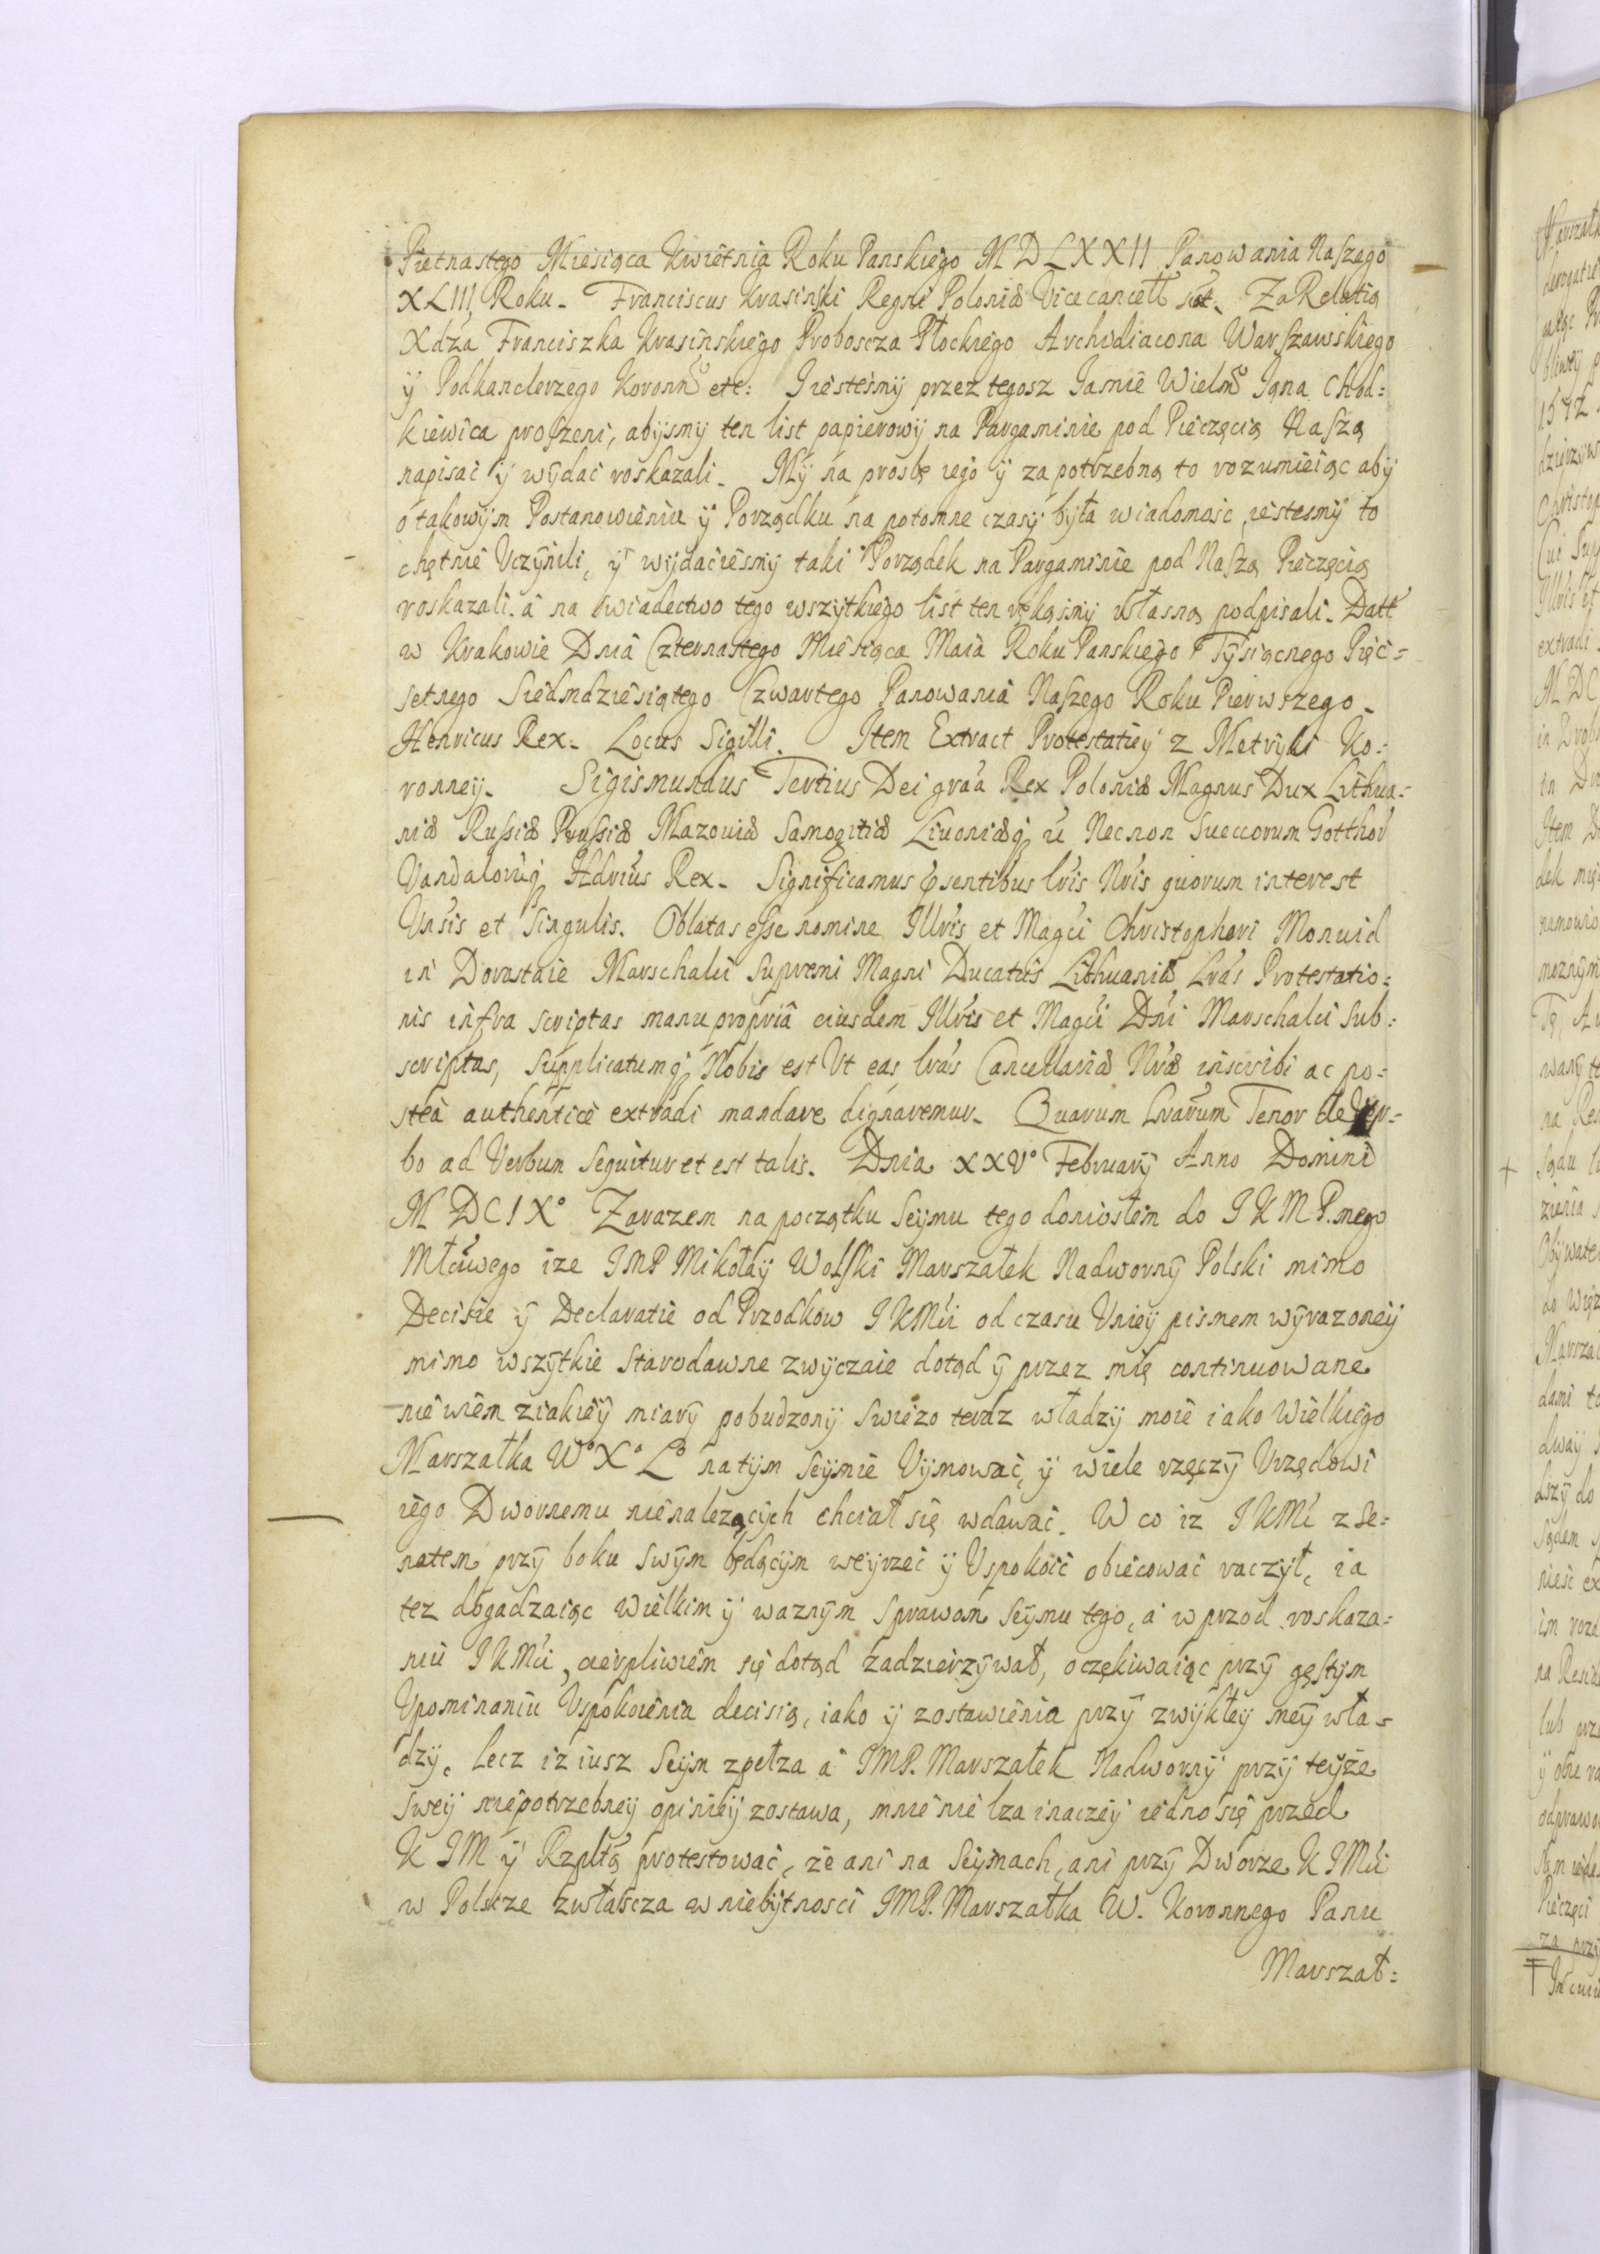 Pietnastego Miesiąca Kwietnia Roku Panskiego MDLXXII Panowania Naszego
XLIII Roku. Franciscus Krasinski Regni Poloniæ Vicecancell sst. Za Relatią
Xdza Franciszka Krasinskiego Proboscza Płockiego Archidiacona Warszawskiego
ÿ Podkanclerzego Koronn° etc: Jiestesmÿ przez tegosz Jasnie Wielm° Jana Chod=
kiewica proszeni, abÿsmy ten list papierowÿ na Pargaminie pod Pieczęcią Naszą
napisać ÿ wÿdać roskazali. Mÿ na prosbę iego ÿ za potrzebną to rozumieiąc abÿ
o takowÿm Postanowieniu ÿ Porządku na potomne czasÿ była wiadomosc, iestesmÿ to
chętnie Vczÿnili, ÿ wÿdaciesmÿ taki Porządek na Pargaminie pod Naszą Pieczęcią
roskazali. a na swiadectwo tego wszÿtkiego list ten rękąsmÿ własną podpisali. Datt
w Krakowie Dnia Czternastego Miesiąca Maia Roku Panskiego Tÿsiącnego Pięć=
setnego Siedmdziesiątego Czwartego Panowania Naszego Roku Pierwszego.
Henricus Rex. Locus Sigilli. Item Extract Protestatieÿ z Metrÿki Ko=
ronneÿ. Sigismundus Tertius Dei gra'a Rex Poloniæ Magnus Dux Lithua=
niæ Russiæ Prussiæ Mazouiæ Samogitiæ Liuoniæq; Necnon Sueccorum Gotthor
Vandalorūq; Hdrius Rex. Significamus pesentibus lr'is Nr'is quorum interest
Vnsis et Singulis. Oblatas esse nomine Illr'is et Mag'ci Christophori Monuid
in Dorostaie Marschalci Supremi Magni Ducatus Lithuaniæ Lra's Protestatio=
nis infra scriptas manu propriâ eiusdem Illr'is et Mag'ci Dn'i Marschalci sub=
scriptas, supplicatumq; Nobis est Vt eas lra's Cancellariæ Nr'æ inscribi ac po=
stea authenticè extradi mandare dignaremur. Quarum Lrarum Tenor de Ver=
bo ad Verbum sequitur et est talis. Dnia XXV° Februarÿ Anno Domini
MDCIX° Zarazem na początku Seÿmu tego doniosłem do J K M P. mego
Młciwego ize JMP Mikołaÿ Wolski Marszałek Nadwornÿ Polski mimo
Decisie ÿ Declaratie od Przodkow J KM'ci od czasu Vnieÿ pismem wÿrazoneÿ
mimo wszÿtkie starodawne zwÿczaie dotąd ÿ przez mię continuowane
nie wiem z iakieÿ miarÿ pobudzonÿ swiezo teraz władzÿ moie iako Wielkiego
Marszałka W° X° L° na tÿm Seÿmie Vÿmować, ÿ wiele rzęczÿ Vrzędowi
iego Dwornemu nienalezącÿch chciał się wdawać. W co iz J KM'ć z Se=
natem przÿ boku swÿm będącÿm weÿrzeć ÿ Vspokoić obiecować raczÿł, ia
tez dogadzaiąc wielkim ÿ waznÿm sprawom Seÿmu tego, a w przod roskaza=
niu J KM'ci, cierpliwiem się dotąd zadzierzÿwał, oczękiwaiąc przÿ gęstÿm
Vpominaniu Vspokoienia decisią, iako ÿ zostawienia przÿ zwÿkłeÿ meÿ wła=
dzÿ, lecz iz iusz Seÿm zpełza a JMP. Marszałek Nadwornÿ przÿ teÿże
sweÿ niepotrzebneÿ opinieÿ zostawa, mnie nie lza inaczeÿ iedno się przed
K JM ÿ Rzpltą protestować, że ani na Seÿmach, ani przÿ Dworze K JM'ci
w Polscze zwłascza w niebÿtnosci JMP. Marszałka W. Koronnego Panu
Marszał=